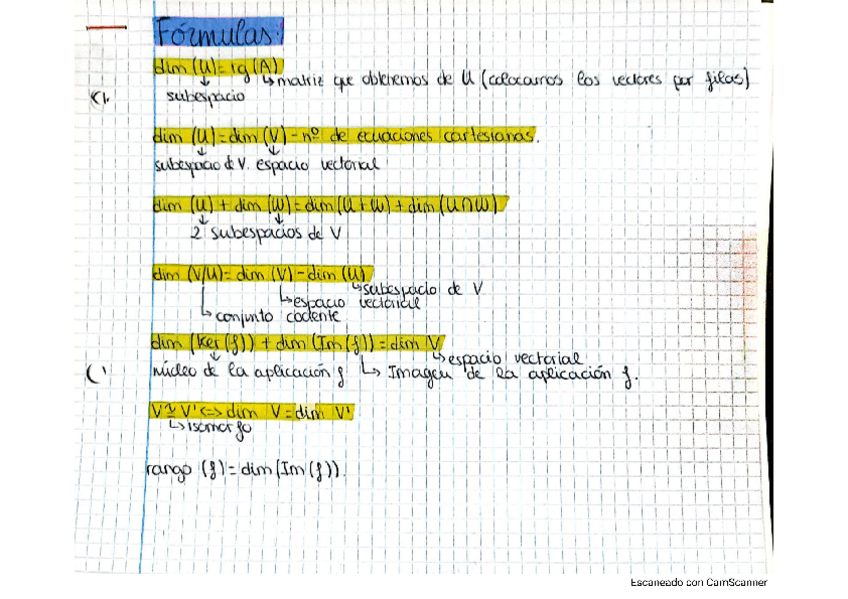 Fórmulas:
dim (U)=rg(A)
↳matriz que obtenemos de U (colocamos los vectores por filas)
subespacio
dim (U)=dim (V)-nº de ecuaciones cartesianas.
subespacio de V. espacio vectorial
dim (U)+dim (W)=dim(U+W)+dim(U∩W)
2 subespacios de V
dim (V/U)=dim (V)-dim (U)
↳subespacio de V
↳espacio vectorial
↳conjunto cociente
dim (Ker(f))+dim(Im(f))=dim V
↳espacio vectorial
núcleo de la aplicación f ↳Imagen de la aplicación f.
V≅V'<=>dim V=dim V'
↳isomorfo
rango (f)=dim(Im(f)).
Escaneado con CamScanner